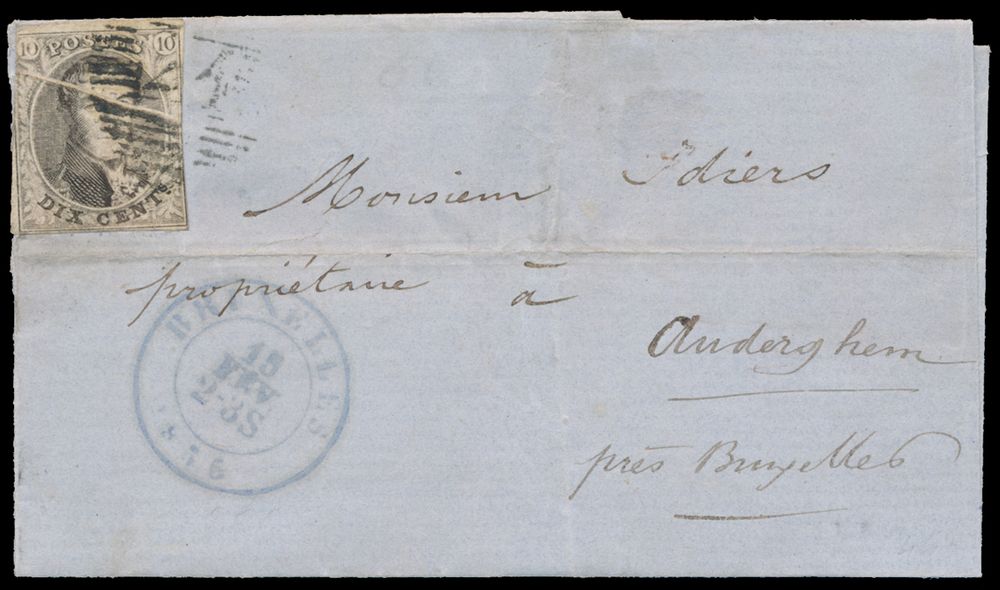 10 POSTES 10
DIX CENTS.
Monsieur Idiers
propriétaire à
BRUXELLES
18
FEV
2-3S
Auderghem
près Bruxelles